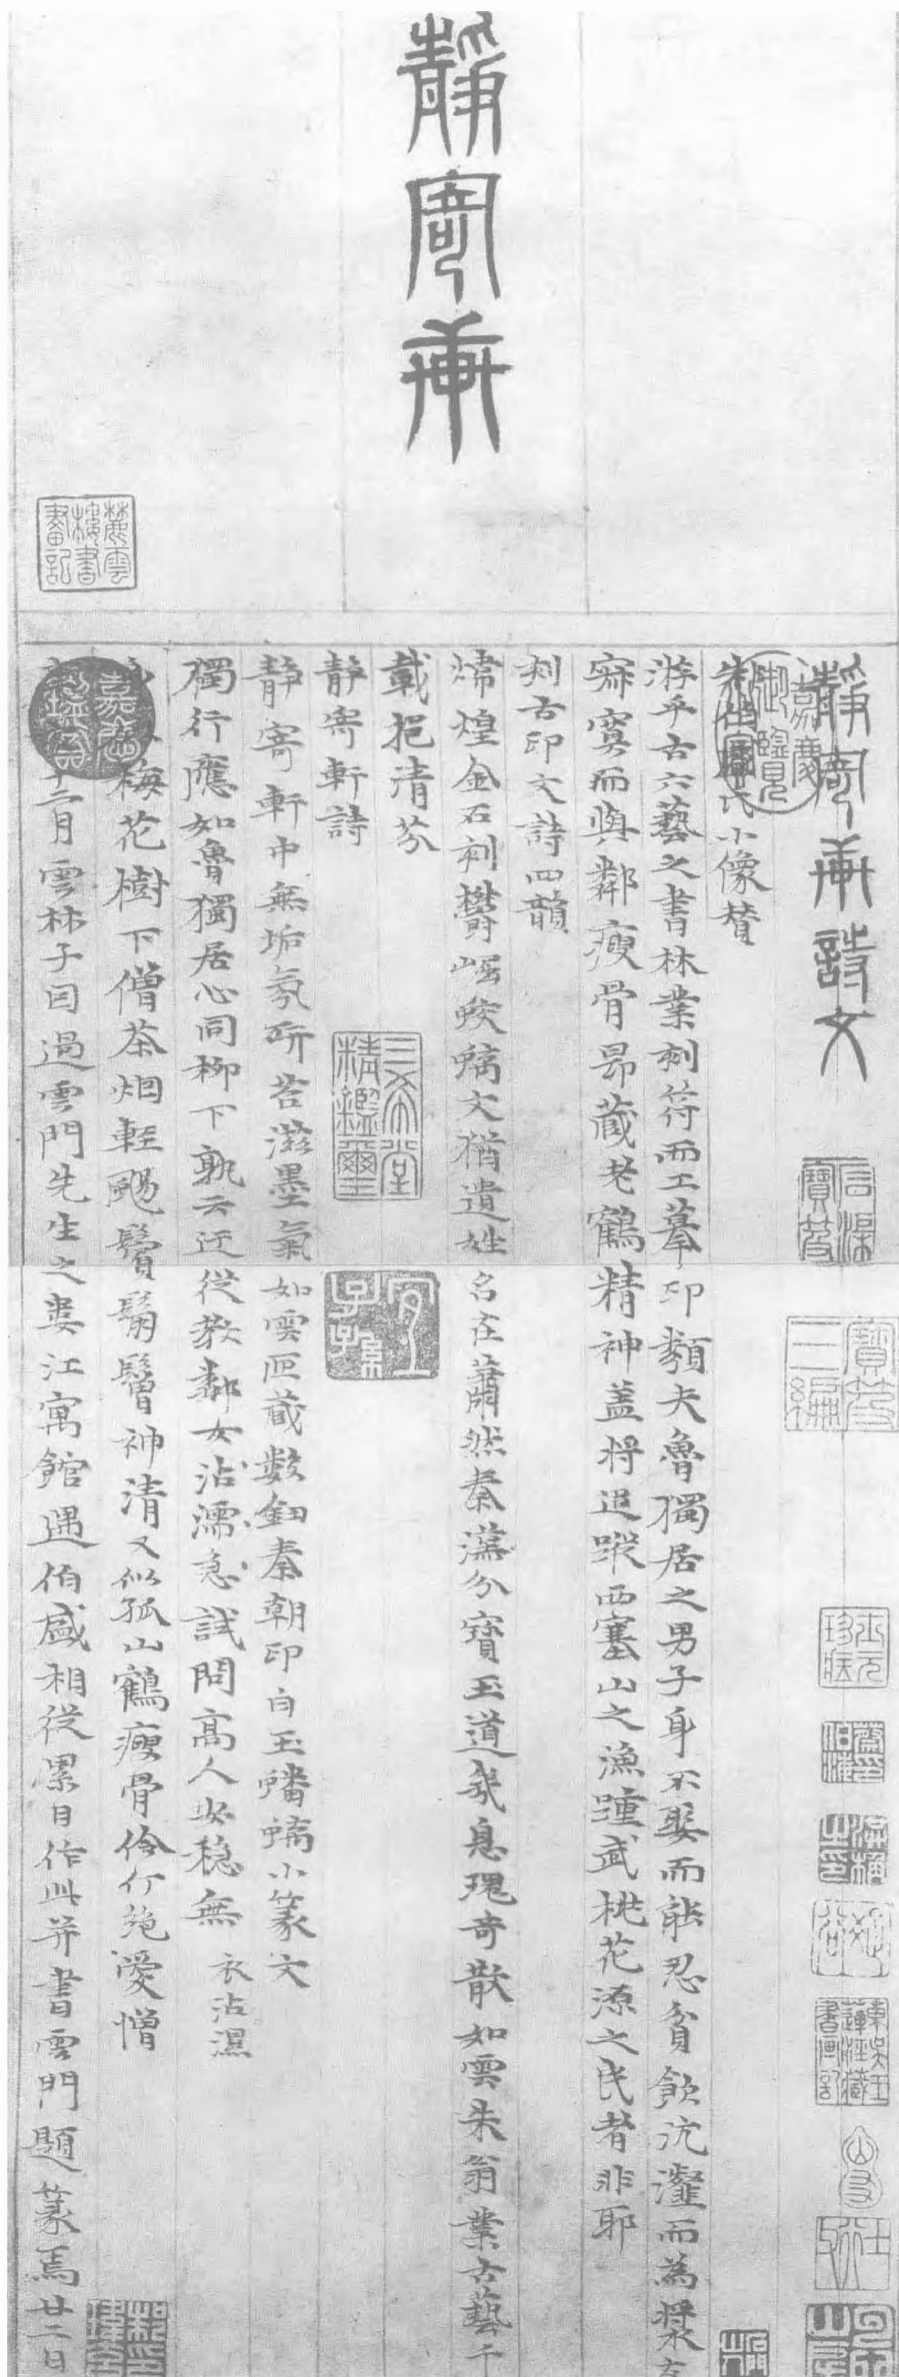 靜寄軒
靜寄軒詩文
氏小像贊
游乎古六藝之書林業刻符而工摹印類夫魯獨居之男子身不娶而能忍貧飲沆瀣而為漿友
寂寞而與鄰瘦骨昂藏老鶴精神蓋將追蹤西塞山之漁踵武桃花源之民者非耶
刻古印文詩四韻
煒煌金石刻欝崛蛟螭文猶遺姓名在蕭然秦漢分寶玉道幾息瑰奇散如雲朱翁業古藝千
載挹清芬
靜寄軒詩
靜寄軒中無垢氛研苔滋墨氣如雲匣藏數鈕秦朝印白玉蟠螭小篆文
獨行應如魯獨居心同柳下孰云迂從教鄰女沾濡急試問高人安穩無 衣沾濕
梅花樹下僧茶烟輕颺鬢鬅鬙神清又似孤山鶴瘦骨伶仃絕愛憎
十二月雲林子因過雲門先生之婁江寓館遇伯盛相從累日作此并書雲門題篆焉廿二日
麓雲樓書畫記
三希堂精鑑璽
宜子孫
寶笈三編